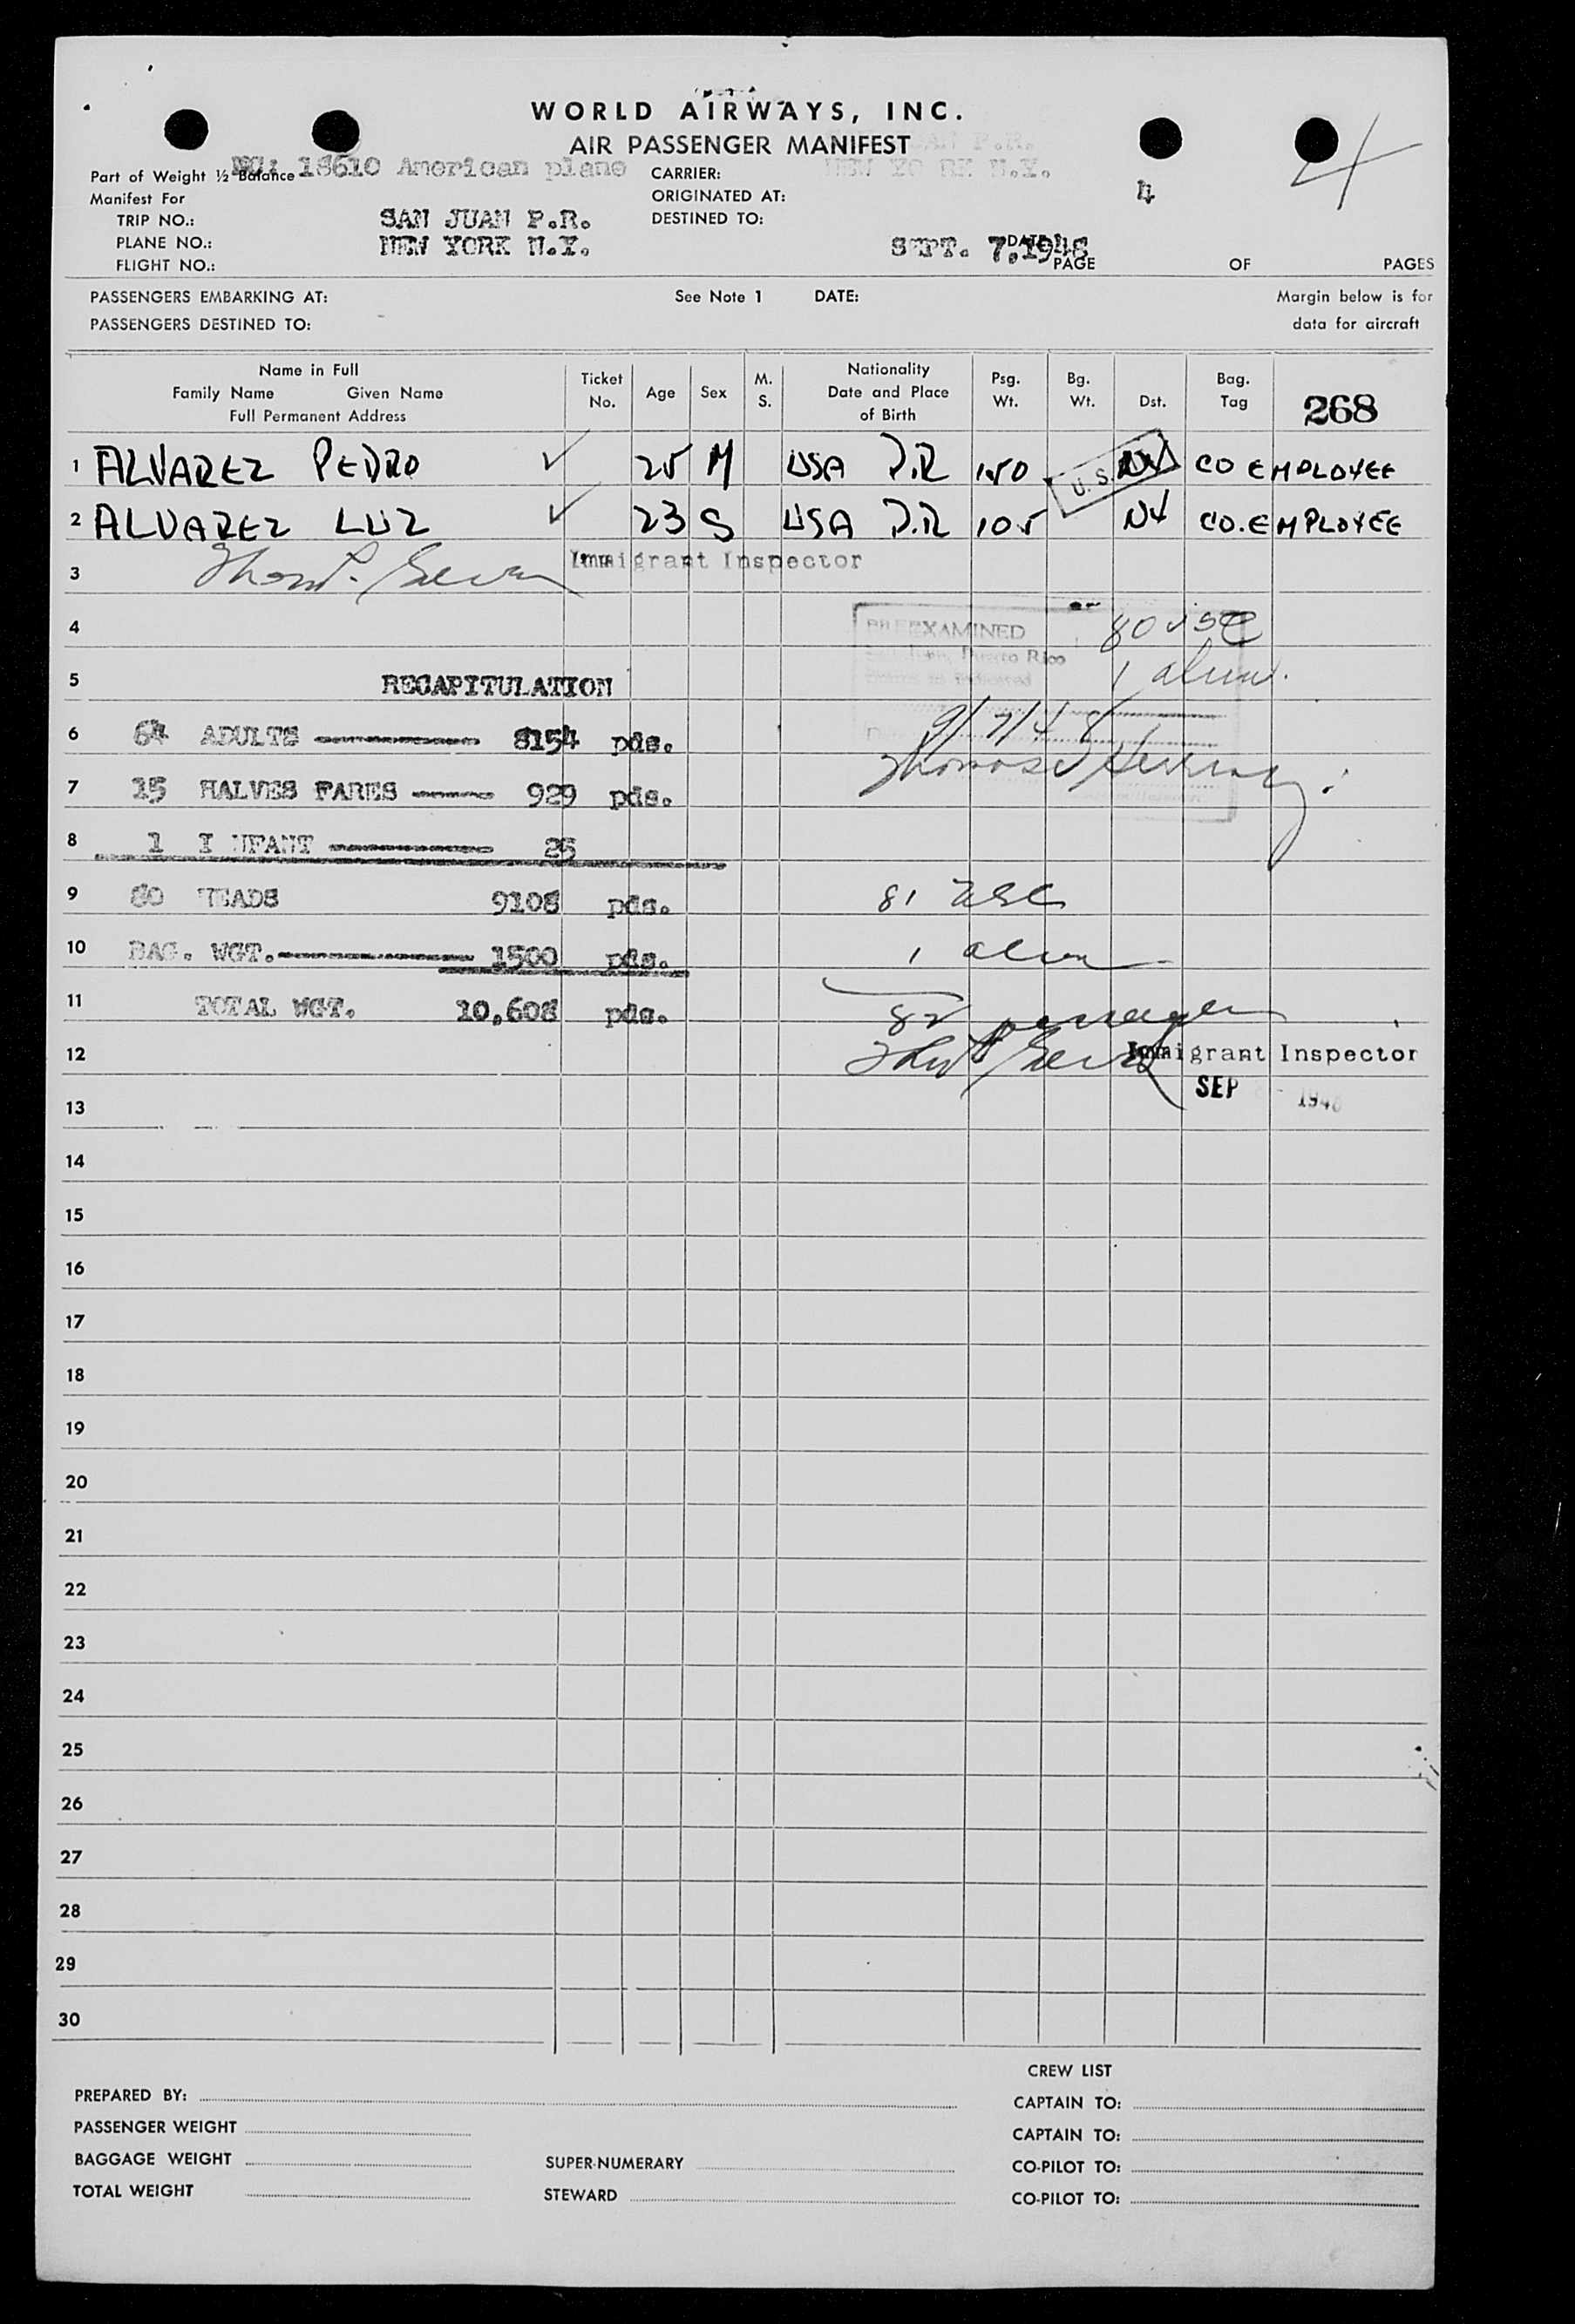 WORLD AIRWAYS, INC.
AIR PASSENGER MANIFEST
Part of Weight ½ Balance 18610 American plane CARRIER: NEW YORK N.Y.
Manifest For ORIGINATED AT: 4 4
TRIP NO.: SAN JUAN P.R. DESTINED TO:
PLANE NO.: NEW YORK N.Y. SEPT. 7,1948 DATE
FLIGHT NO.: PAGE OF PAGES
PASSENGERS EMBARKING AT: See Note 1 DATE: Margin below is for
PASSENGERS DESTINED TO: data for aircraft
Name in Full Ticket Age Sex M. Nationality Psg. Bg. Dst. Bag. 268
Family Name Given Name No. S. Date and Place Wt. Wt. Tag
Full Permanent Address of Birth
1 ALVAREZ PEDRO ✓ 25 M USA P.R 150 U.S. NY CO EMPLOYEE
2 ALVAREZ LUZ ✓ 23 S USA P.R 105 NY CO. EMPLOYEE
3 Immigrant Inspector
4 PREEXAMINED 80 USC
Puerto Rico
5 RECAPITULATION 1 alien.
6 64 ADULTS 8154 pds. 9/7/48
7 15 HALVES FARES 929 pds.
8 1 INFANT 25
9 80 HEADS 9108 pds. 81 USC
10 BAG. WGT. 1500 pds. 1 alien
11 TOTAL WGT. 10,608 pds. 82 passengers
12 Immigrant Inspector
13 SEP 1948
14
15
16
17
18
19
20
21
22
23
24
25
26
27
28
29
30
CREW LIST
PREPARED BY: CAPTAIN TO:
PASSENGER WEIGHT CAPTAIN TO:
BAGGAGE WEIGHT SUPER-NUMERARY CO-PILOT TO:
TOTAL WEIGHT STEWARD CO-PILOT TO: